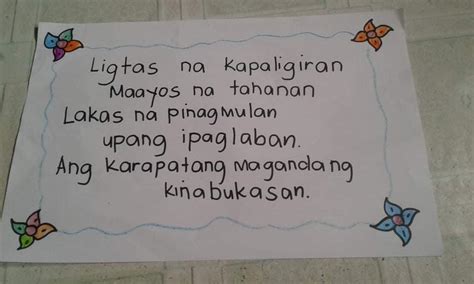 Ligtas na kapaligiran
Maayos na tahanan
Lakas na pinagmulan
upang ipaglaban.
Ang karapatang magandang
kinabukasan.